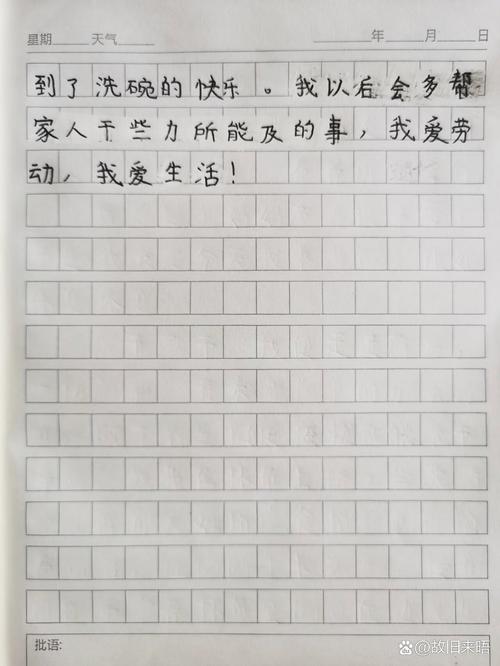 星期 天气 年 月 日
到了洗碗的快乐。我以后会多帮
家人干些力所能及的事，我爱劳
动，我爱生活！
批语:
故旧来晤